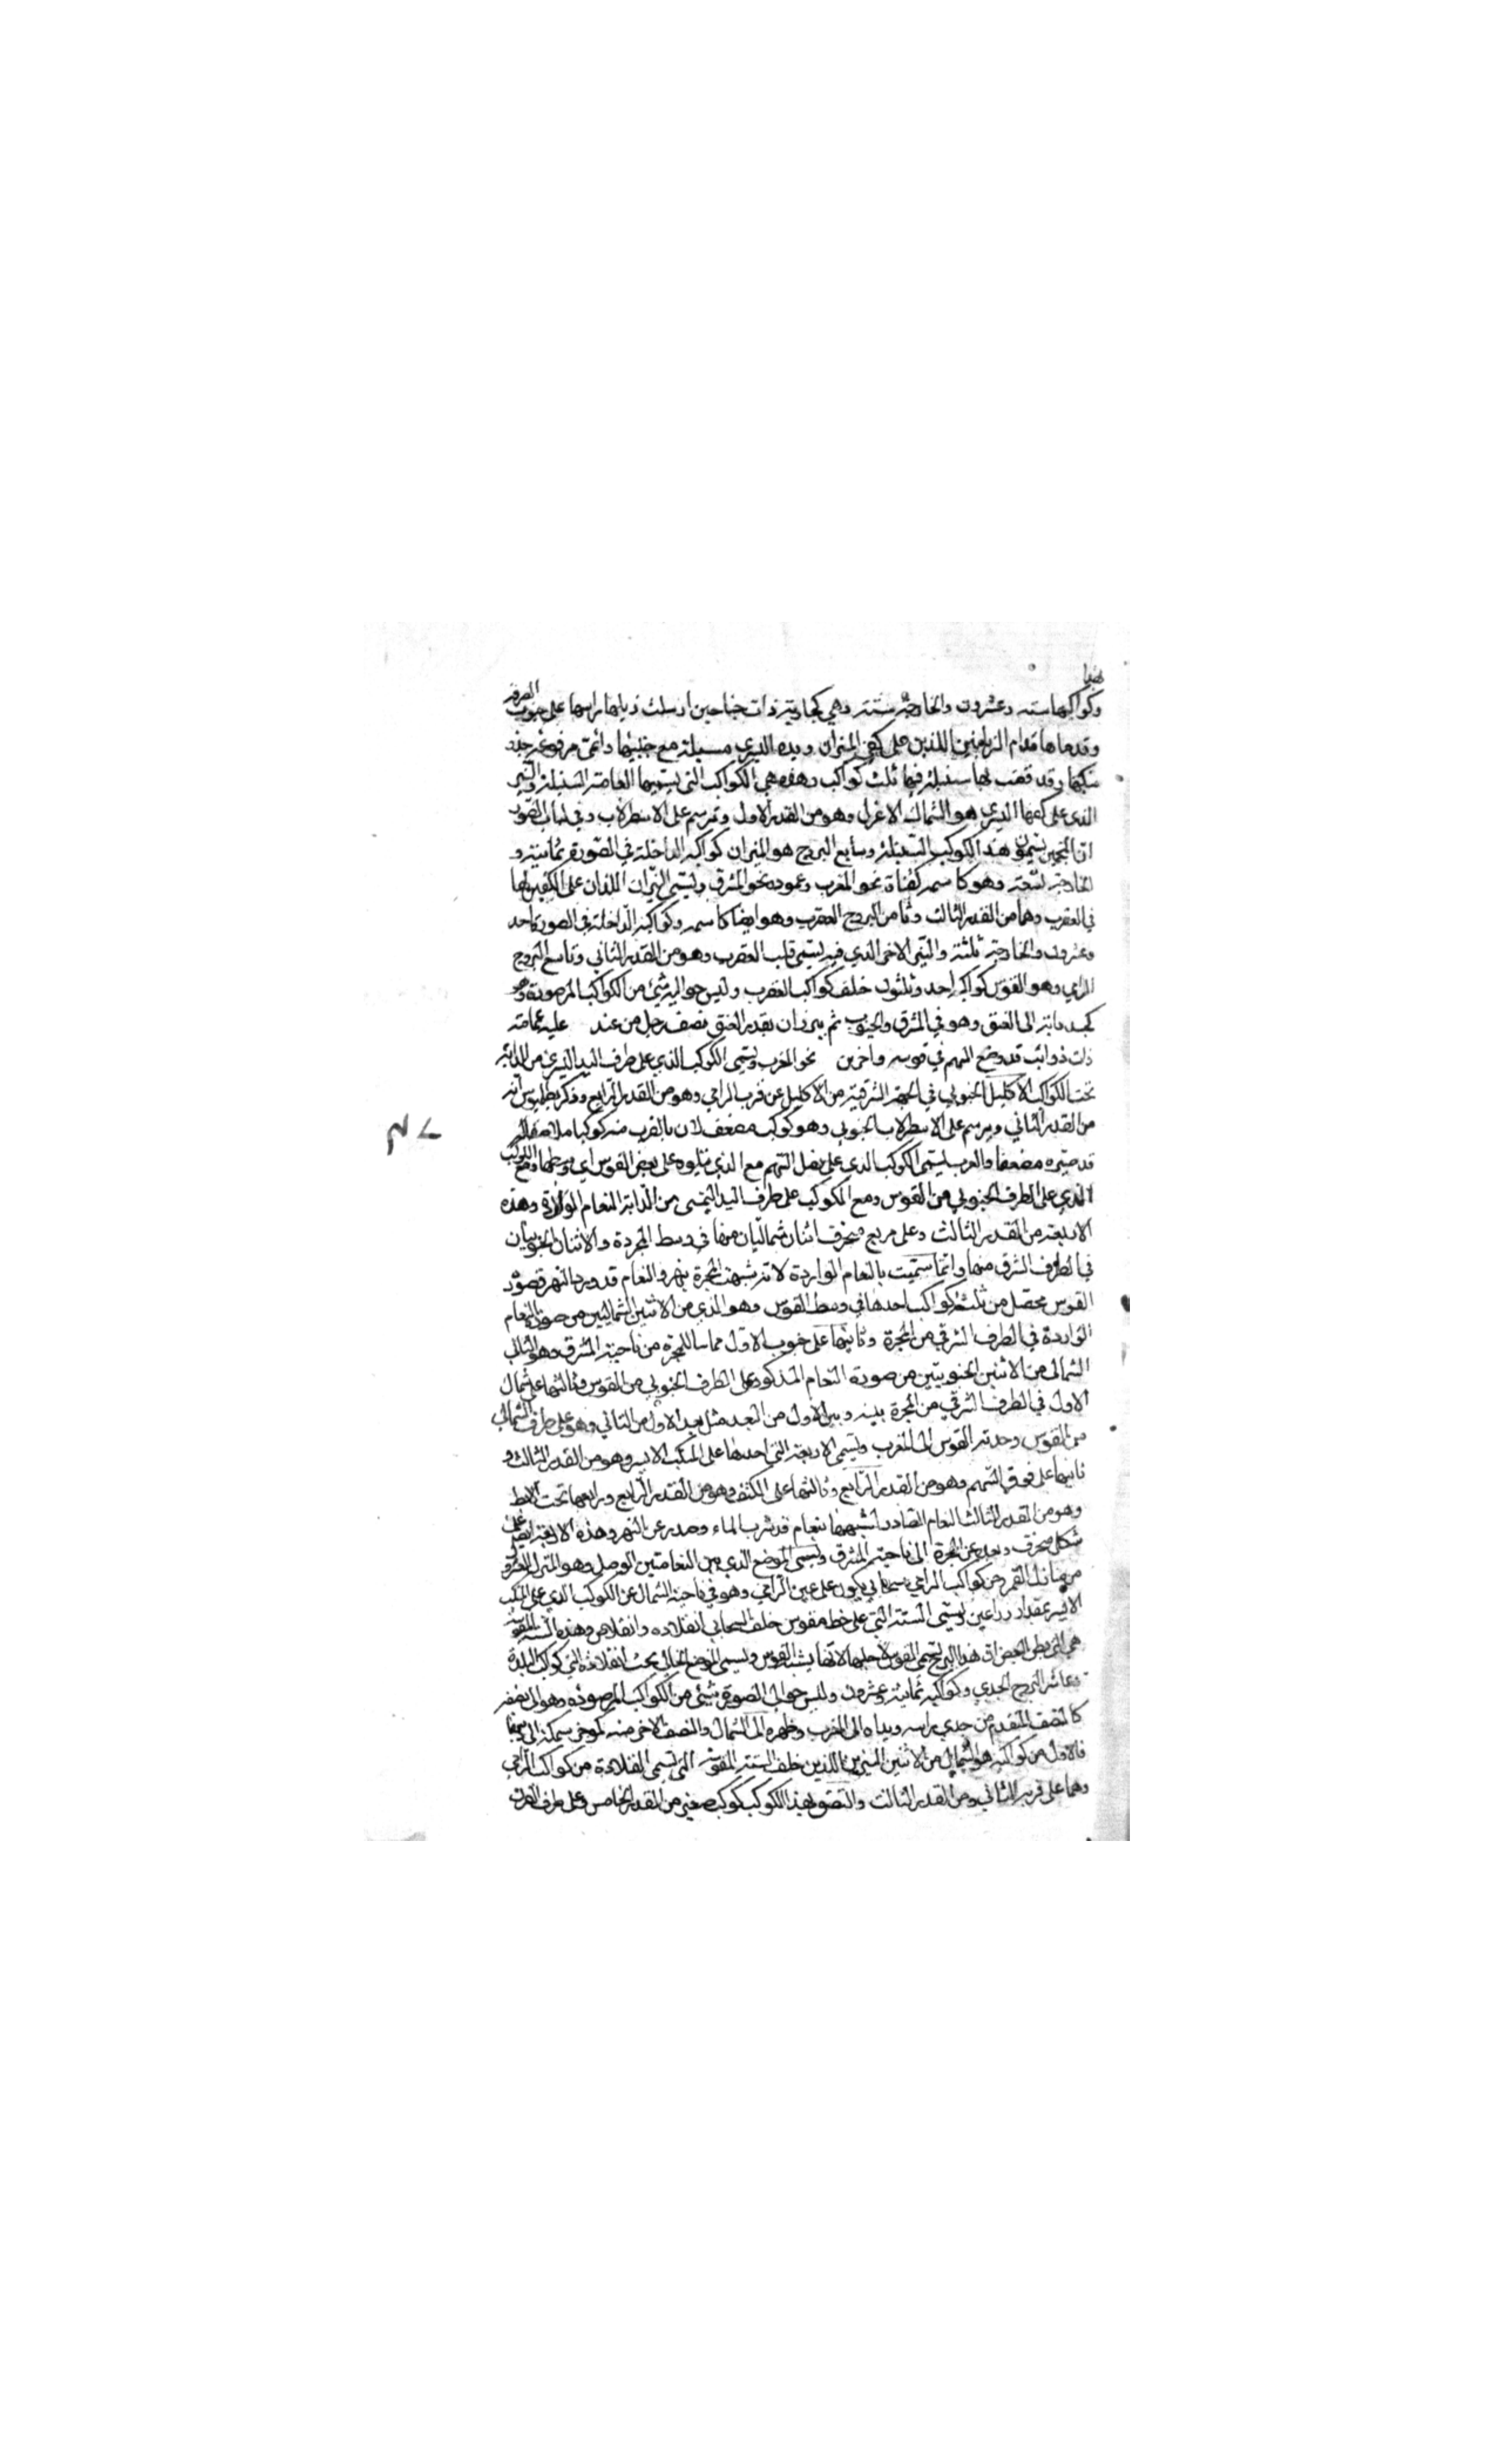 وكواكبها ستة وعشرون والخارجة ستة وهي كجارية ذات جناحين ارسلت ذيلها راسها على جنوب الصرفة
وقدماها قدام الزبانيين اللذين على كفتي الميزان ويدها اليسرى مسبلة مع جنبها واليمنى مرفوعة حذو
منكبها وقد قبضت بها سنبلة فيها ثلث كواكب وهذه هي الكواكب التي يسميها العامة السنبلة والنير
الذي على كفها اليسرى هو السماك الاعزل وهو من القدر الاول وترسم على الاسطرلاب وفي
ان المنجمين يسمون هذا الكوكب السنبلة وسابع البروج هو الميزان كواكبه الداخلة في الصورة ثمانية و
الخارجة تسعة وهو كاسمه كفتاه نحو المغرب وعموده نحو المشرق ويسمى النيران اللذان على الكفتين
في العقرب وهما من القدر الثالث وثامن البروج العقرب وهو ايضا كاسمه وكواكبه الداخلة في الصورة احد
وعشرون والخارجة ثلثة والنير الاحمر الذي فيه يسمى قلب العقرب وهو من القدر الثاني وتاسع البروج
الرامي وهو القوس كواكبه احد وثلثون خلف كواكب العقرب وليس حواليه شيء من الكواكب المرصودة وهو
كجسد دابة الى العنق وهو في المشرق والجنوب ثم يبرز ان بقدر العنق نصف رجل من عند عليه عمامة
ذات ذوائب قد وضع السهم في قوسه نحو المغرب ويسمى الكوكب الذي على طرف اليد اليسرى من الدابة
تحت الكواكب الاكليل الجنوبي في الجهة الشرقية من الاكليل عن قرب الرامي وهو من القدر الرابع وذكر بطليوس انه
من القدر الثاني ويرسم على الاسطرلاب الجنوبي وهو كوكب مضعف لان بالقرب منه كوكبا ملاصقا له
قد صيره مضعفا والعرب يسمى الكوكب الذي على نصل السهم مع الذي يتلوه على مقبض القوس اي وسطها ومع الكوكب
الذي على الطرف الجنوبي من القوس ومع الكوكب على طرف اليد اليمنى من الدابة النعام الواردة وهذه
الاربعة من القدر الثالث وعلى مربع منحرف اثنان شماليان منها في وسط المجرة والاثنان الجنوبيان
في الطرف الشرقي منها وانما سميت بالنعام الواردة لانه شبهت المجرة بنهر والنعام قد ورد النهر فصورة
القوس محصل من ثلثة كواكب احدها في وسط القوس وهو الذي من الاثنين الشماليين من صورة النعام
الواردة في الطرف الشرقي من المجرة وثانيها على جنوب الاول مماسا للمجرة من ناحية المشرق وهو الثالث
الشمالى من الاثنين الجنوبيتين من صورة النعام المذكور على الطرف الجنوبي من القوس وثالثها على شمال
الاول في الطرف الشرقي من المجرة بينه وبين الاول من البعد مثل بعد الاول من الثاني وهو على طرف الشمالي
من القوس وحدته القوس الى المغرب ويسمى الاربعة التي احدها على المنكب الايسر وهو من القدر الثالث و
ثانيها على فوق السهم وهو من القدر الرابع وثالثها على الكتف وهو من القدر الرابع ورابعها تحت الابط
وهو من القدر الثالث النعام الصادر لشبهها بنعام قد شرب الماء وصدر عن النهر وهذه الاربعة ايضا على
شكل منحرف وبعد عن المجرة الى ناحية المشرق ويسمى الموضع الذي بين النعامتين الوصل وهو المنزل
من منازل القمر ومن كواكب الرامي سحابي يكون على عين الرامي وهو في ناحية الشمال عن الكوكب الذي على المنكب
الايسر بمقدار ذراعين ويسمى الستة التي على خط مقوس خلف السحابي القلادة وهذه الستة المقوسة
هي التي يظن البعض ان هذا البرج يسمى القوس لاجلها لانها يشبه القوس ويسمى الموضع الخالي تحت القلادة التي كواكب البلدة
وعاشر البروج الجدي وكواكبه ثمانية وعشرون وليس حوالي الصورة شيء من الكواكب المرصودة وهو الى نصفه
كالنصف المقدم من جدي براسه ويداه الى المغرب وظهره الى الشمال والنصف الاخر منه كموخر سمكة الى ذنبها
فالاول من كواكبه هو الشمالي من الاثنين النيرين اللذين خلف الستة المقوسة التي تسمى القلادة من كواكب الرامي
وهما على قرنه الثاني ومن القدر الثالث والتصق بهذا الكوكب كوكب صغير من القدر الخامس وعلى طرف القرن